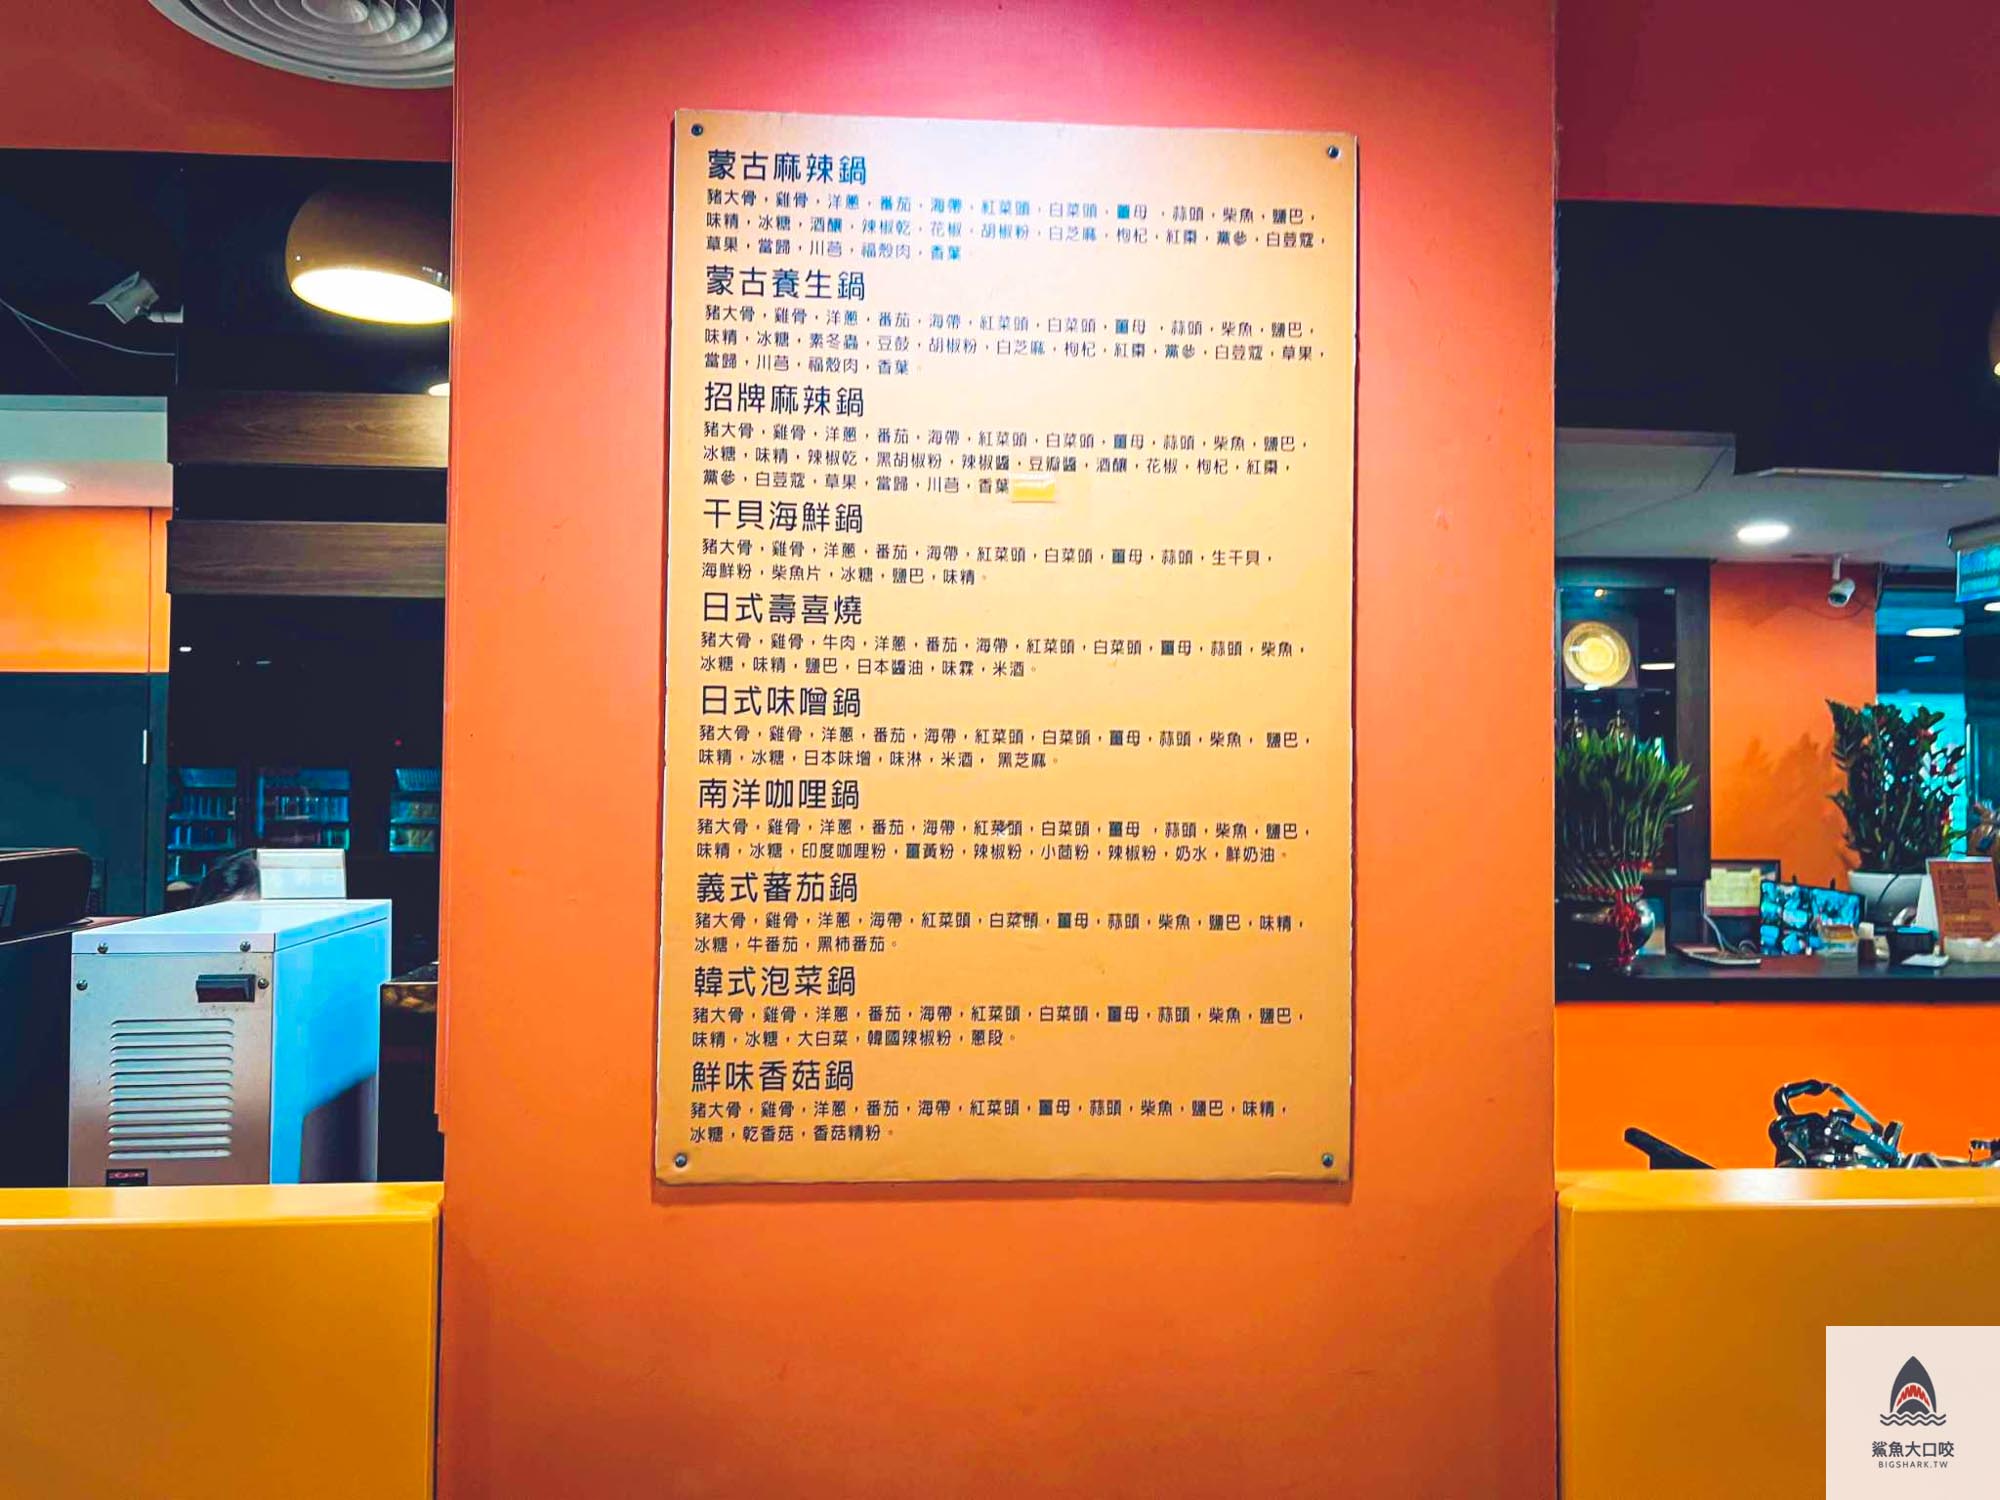 蒙古麻辣鍋
豬大骨，雞骨，洋蔥，番茄，海帶，紅菜頭，白菜頭，薑母，蒜頭，柴魚，鹽巴，
味精，冰糖，酒釀，辣椒乾，花椒，胡椒粉，白芝麻，枸杞，紅棗，黨蔘，白荳蔻，
草果，當歸，川芎，福殼肉，香葉
蒙古養生鍋
豬大骨，雞骨，洋蔥，番茄，海帶，紅菜頭，白菜頭，薑母，蒜頭，柴魚，鹽巴，
味精，冰糖，素冬蟲，豆鼓，胡椒粉，白芝麻，枸杞，紅棗，黨蔘，白荳蔻，草果，
當歸，川芎，福殼肉，香葉。
招牌麻辣鍋
豬大骨，雞骨，洋蔥，番茄，海帶，紅菜頭，白菜頭，薑母，蒜頭，柴魚，鹽巴，
冰糖，味精，辣椒乾，黑胡椒粉，辣椒醬，豆瓣醬，酒釀，花椒，枸杞，紅棗，
黨蔘，白荳蔻，草果，當歸，川芎，香葉
干貝海鮮鍋
豬大骨，雞骨，洋蔥，番茄，海帶，紅菜頭，白菜頭，薑母，蒜頭，生干貝，
海鮮粉，柴魚片，冰糖，鹽巴，味精。
日式壽喜燒
豬大骨，雞骨，牛肉，洋蔥，番茄，海帶，紅菜頭，白菜頭，薑母，蒜頭，柴魚，
冰糖，味精，鹽巴，日本醬油，味霖，米酒。
日式味噌鍋
豬大骨，雞骨，洋蔥，番茄，海帶，紅菜頭，白菜頭，薑母，蒜頭，柴魚，鹽巴，
味精，冰糖，日本味增，味淋，米酒，黑芝麻。
南洋咖哩鍋
豬大骨，雞骨，洋蔥，番茄，海帶，紅菜頭，白菜頭，薑母，蒜頭，柴魚，鹽巴，
味精，冰糖，印度咖哩粉，薑黃粉，辣椒粉，小茴粉，辣椒粉，奶水，鮮奶油。
義式蕃茄鍋
豬大骨，雞骨，洋蔥，海帶，紅菜頭，白菜頭，薑母，蒜頭，柴魚，鹽巴，味精，
冰糖，牛番茄，黑柿番茄。
韓式泡菜鍋
豬大骨，雞骨，洋蔥，番茄，海帶，紅菜頭，白菜頭，薑母，蒜頭，柴魚，鹽巴，
味精，冰糖，大白菜，韓國辣椒粉，蔥段。
鮮味香菇鍋
豬大骨，雞骨，洋蔥，番茄，海帶，紅菜頭，薑母，蒜頭，柴魚，鹽巴，味精，
冰糖，乾香菇，香菇精粉。
鯊魚大口咬
BIGSHARK.TW